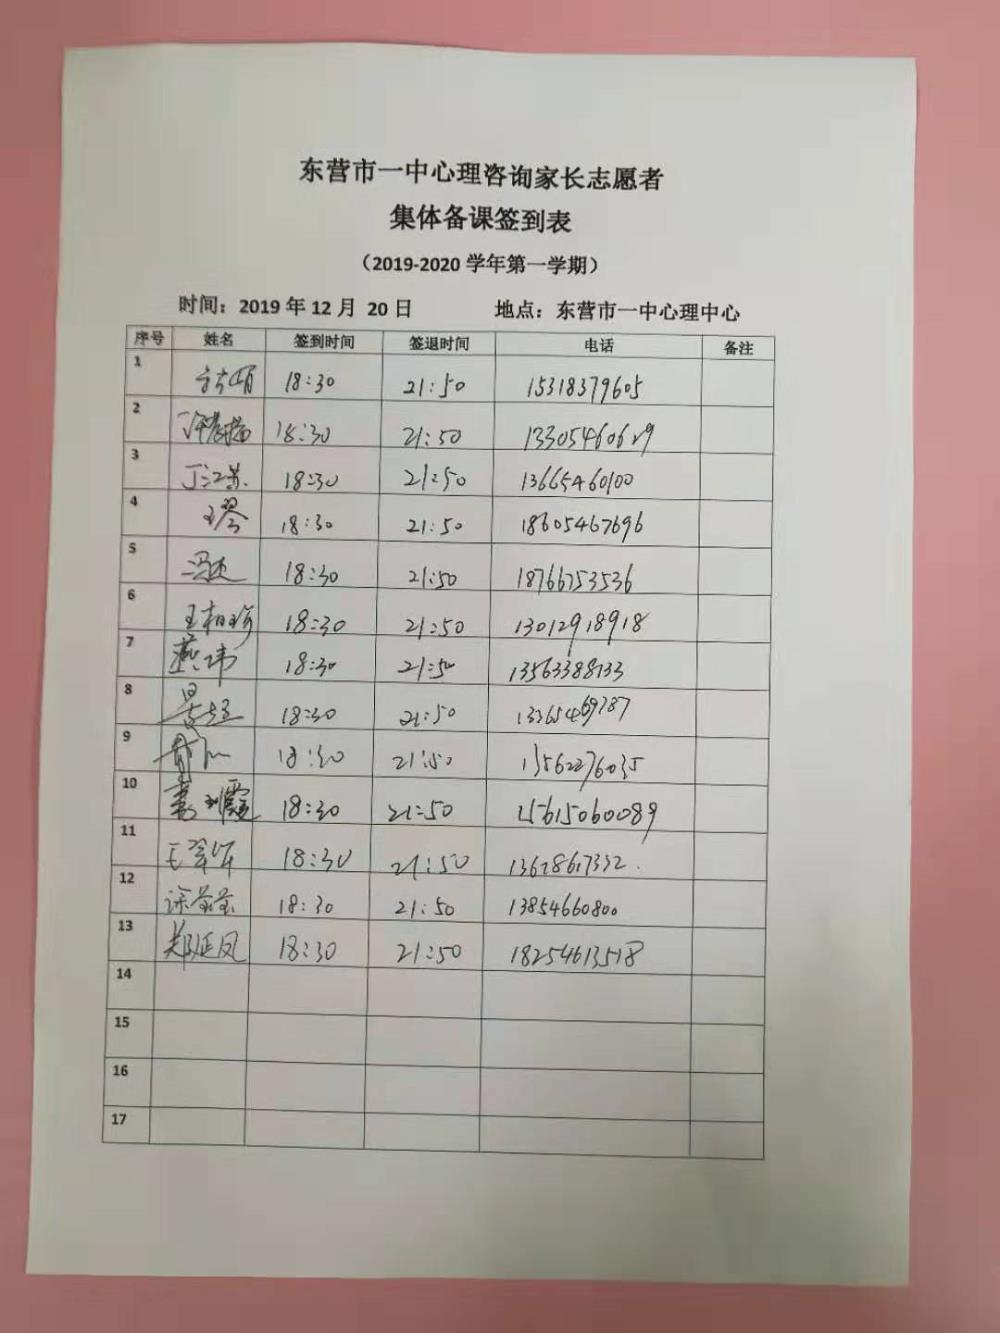 东营市一中心理咨询家长志愿者
集体备课签到表
（2019-2020 学年第一学期）
时间：2019 年 12 月 20 日 地点：东营市一中心理中心
序号 姓名 签到时间 签退时间 电话 备注
1 18:30 21:50 15318379605
2 18:30 21:50
3 丁江燕 18:30 21:50 13665460100
4 王琴 18:30 21:50 18605467696
5 18:30 21:50 18766753536
6 王相珍 18:30 21:50 13012918918
7 燕玮 18:30 21:50 13563388133
8 18:30 21:50
9 18:30 21:50 13562276035
10 18:30 21:50 15615060089
11 18:30 21:50
12 18:30 21:50 13854660800
13 郑延凤 18:30 21:50 18254613518
14
15
16
17